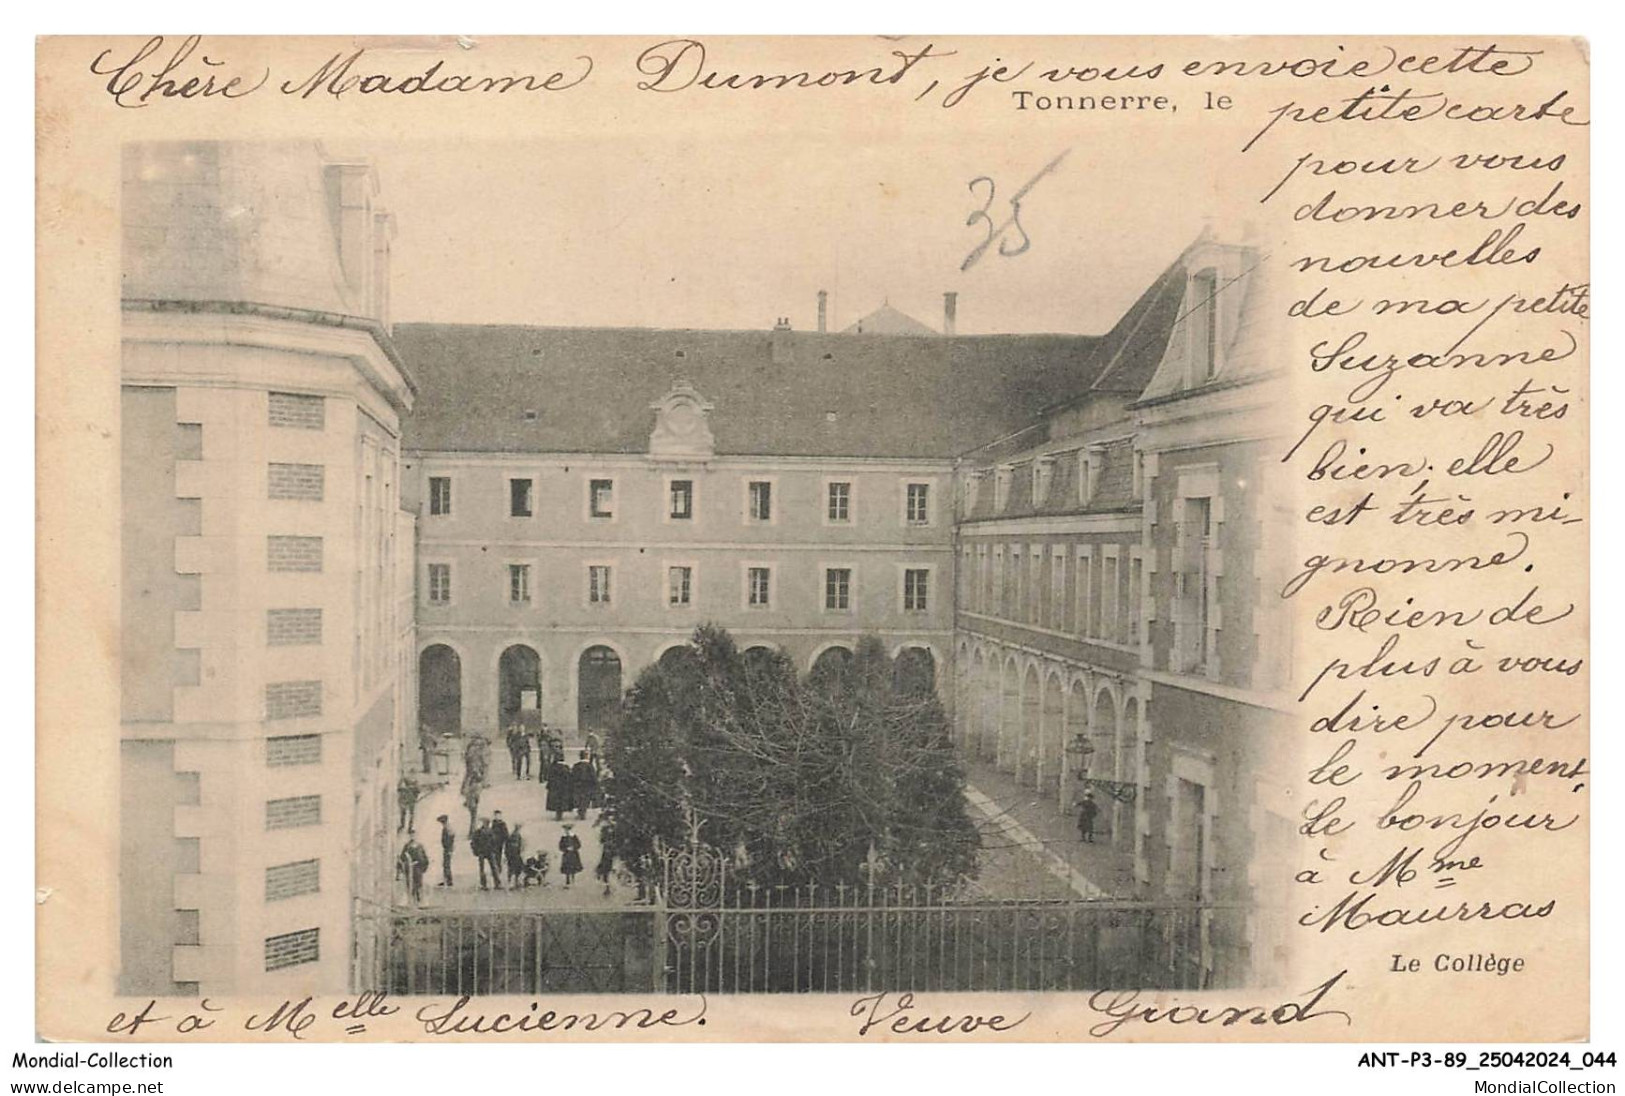 Chère Madame Dumont, je vous envoie cette
Tonnerre, le
petite carte
pour vous
donner des
nouvelles
de ma petite
Suzanne
qui va très
bien, elle
est très mi-
gnonne.
Rien de
plus à vous
dire pour
le moment,
Le bonjour
à Mme
Maurras
et à Melle Lucienne.
Veuve Grand
35
Le Collège
Mondial-Collection
ANT-P3-89_25042024_044
www.delcampe.net
MondialCollection